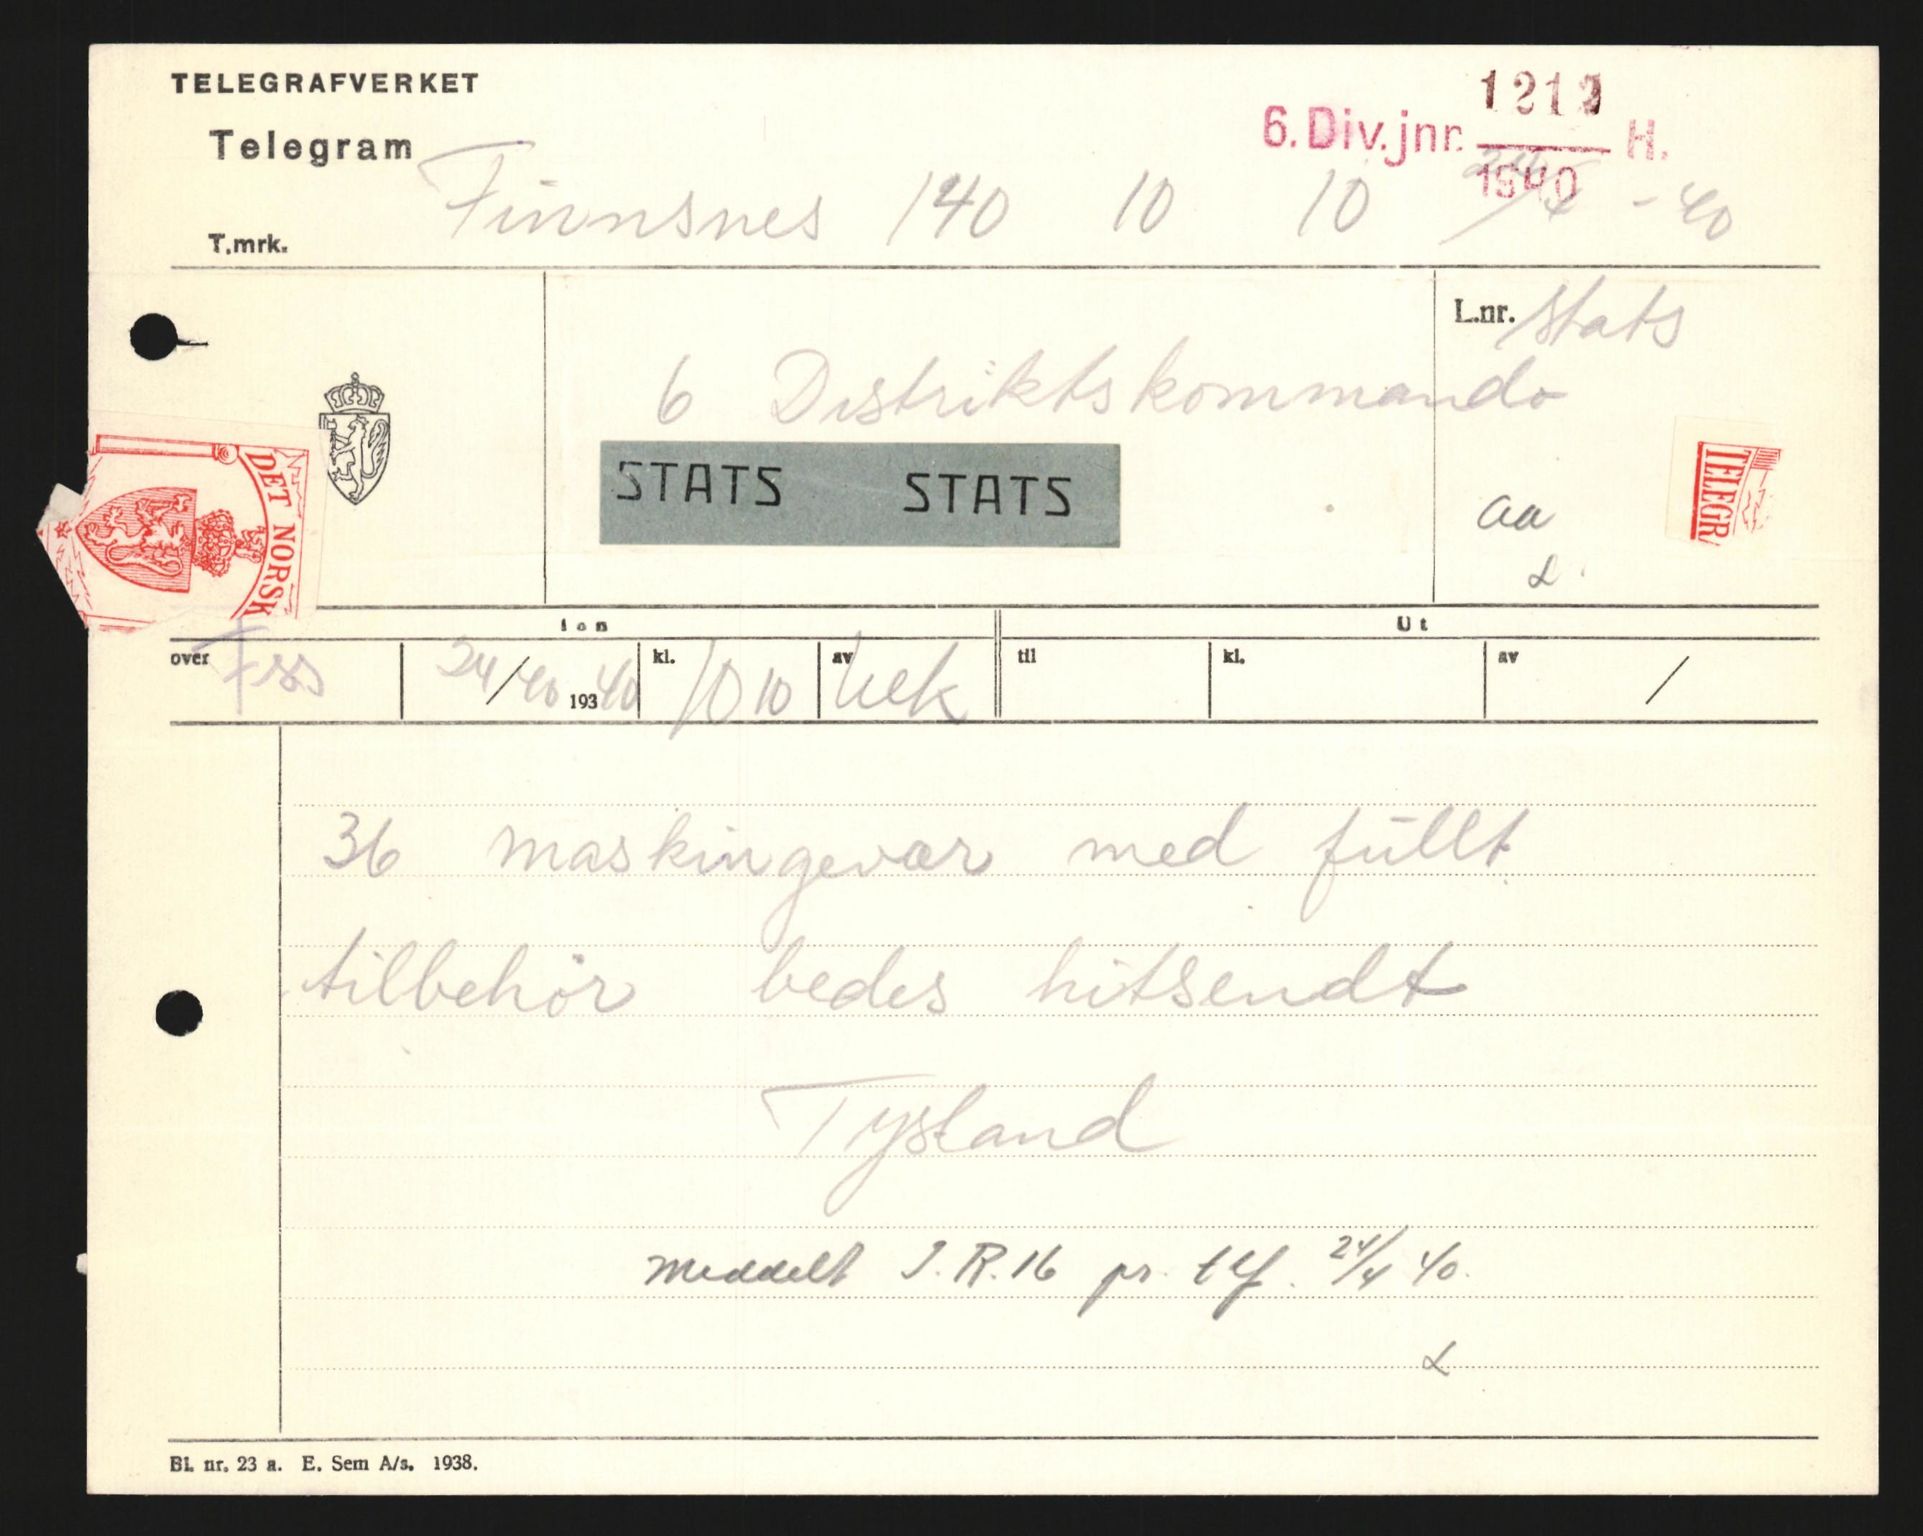 TELEGRAFVERKET
1212
6. Div. jnr. H.
1940
Telegram
Finnsnes 140 10 10 24/4 - 40
T.mrk.
L.nr. Stats
6 Distriktskommando
STATS STATS
aa
DET NORSK
TELEGR
Inn
Ut
over Fss 24/40 193 40 kl. 10 10 av til kl. av /
36 maskingevær med füllt
tilbehör bedes hitsendt
Tysland
Meddelt I.R. 16 pr. tlf. 24/4 40.
Bl. nr. 23 a. E. Sem A/s. 1938.